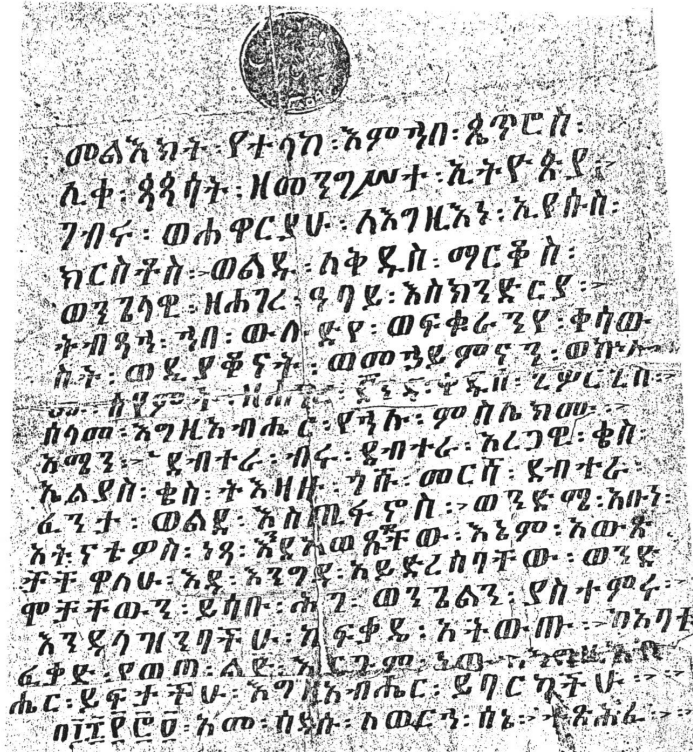 መልእክት፡ የተላከ፡ እምኀበ፡ ጴጥሮስ፡
ሊቀ፡ ጳጳሳት፡ ዘመንግሥተ፡ ኢትዮጵያ፡
ገብሩ፡ ወሐዋርያሁ፡ ለእግዚእነ፡ ኢየሱስ፡
ክርስቶስ፡ ወልዱ፡ ለቅዱስ፡ ማርቆስ፡
ወንጌላዊ፡ ዘሐገረ፡ ዓባይ፡ እስክንድርያ፡
ትብጻኅ፡ ኀበ፡ ውሉድየ፡ ወፍቁራንየ፡ ቀሳው
ስት፡ ወዲያቆናት፡ ወመኃይምናን፡
ሰላመ፡ እግዚአብሔር፡ የኀሉ፡ ምስሌክሙ፡
አሜን፡ ደብተራ፡ ብሩ፡ ደብተራ፡ አረጋዊ፡ ቄስ
ኤልያስ፡ ቄስ፡ ትእዛዙ፡ ጎሹ፡ መርሻ፡ ደብተራ፡
ፈንታ፡ ወልደ፡ እስጢፋኖስ፡ ወንድሜ፡ አቡነ፡
አትናቴዎስ፡ ነጻ፡ እኔም፡ አውጽ
ቻችዋለሁ፡ እጅ፡ እንግዳ፡ አይድረስባችው፡ ወንድ
ሞቻችውን፡ ይሰቡ፡ ሕገ፡ ወንጌልን፡ ያስተምሩ፡
እንዳላዝንባችሁ፡ ፍቃዴ፡ አትውጡ፡
ፈቃድ፡ የወጣ፡ ልጅ፡
ሔር፡ ይፍታችሁ፡ እግዚአብሔር፡ ይባርካችሁ፡
አመ፡ ሰድሱ፡ ለወርኀ፡ ሰኔ፡ ተጽሕፈ፡